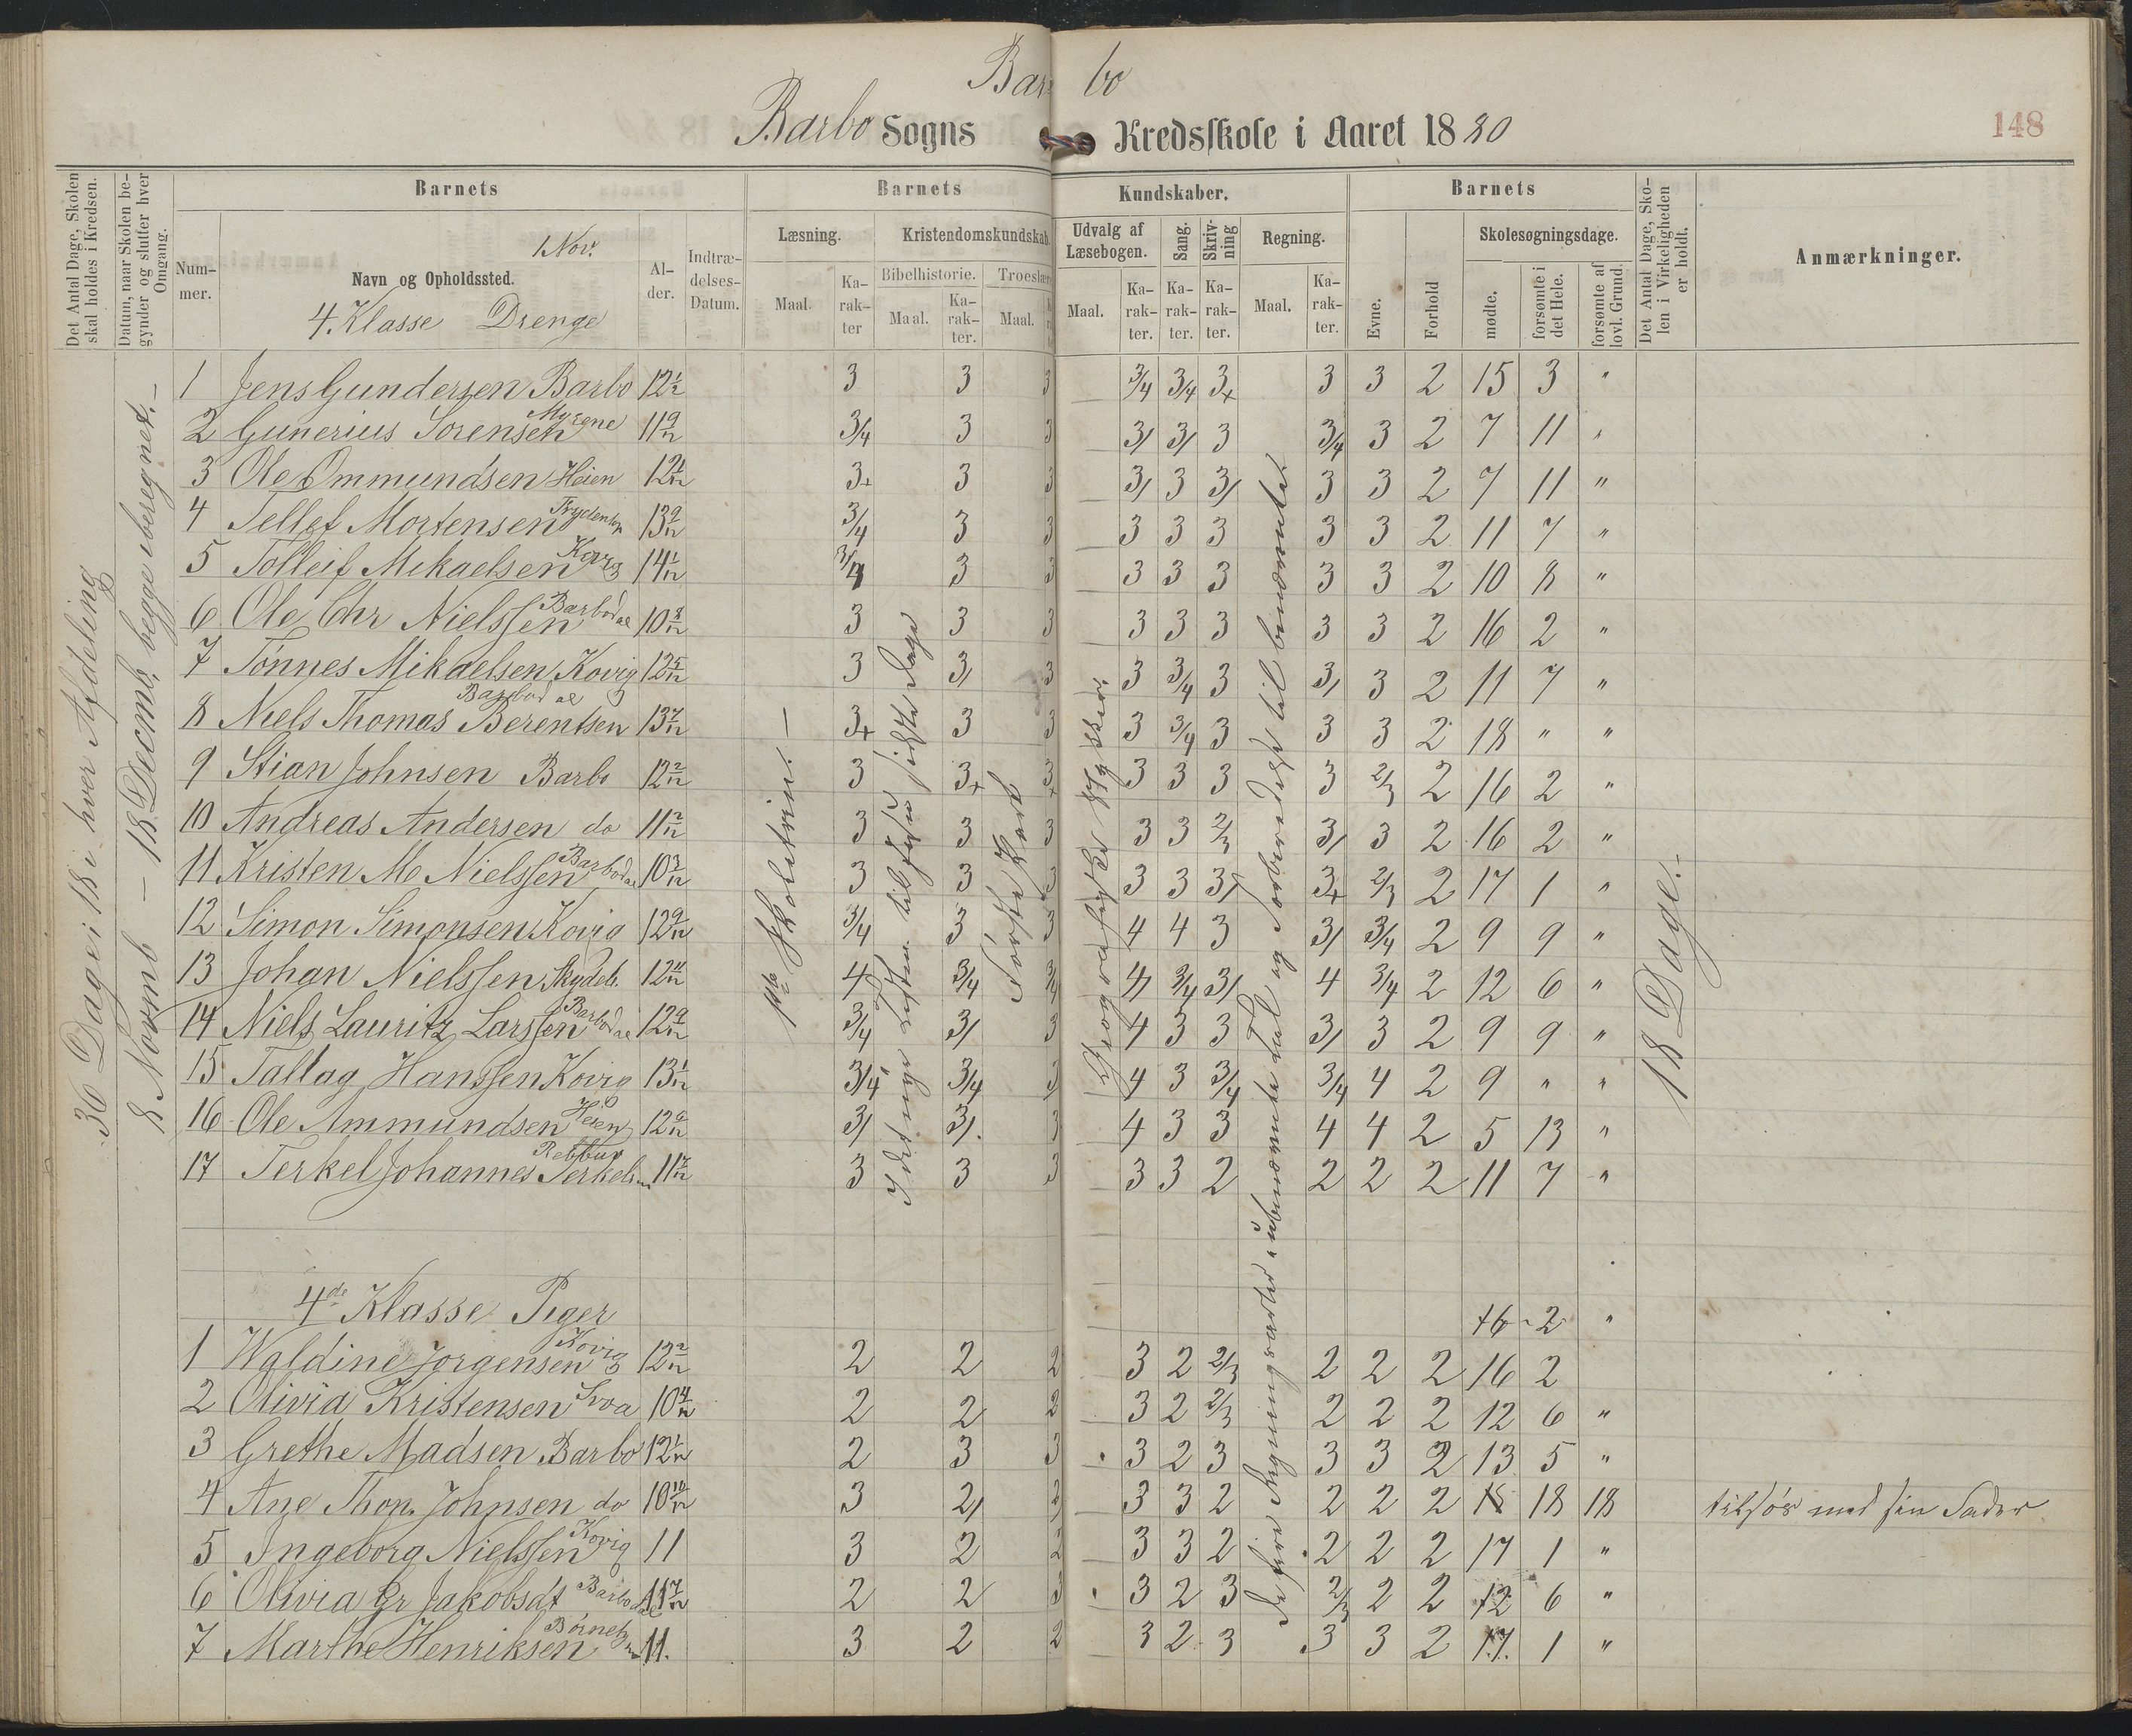 Barbo
Barbo Sogns Kredsskole i Aaret 1880
148
Det Antal Dage, Skolen skal holdes i Kredsen.
Datum, naar Skolen begynder og slutter hver Omgang.
Barnets
Nummer.
Navn og Opholdssted.
1 Nov.
4. Klasse Drenge
Alder.
Indtrædelses-Datum.
Barnets Kundskaber.
Læsning.
Maal.
Karakter
Kristendomskundskab.
Bibelhistorie.
Maal.
Karakter.
Troeslære
Maal.
Udvalg af Læsebogen.
Maal.
Karakter.
Sang.
Karakter.
Skrivning
Karakter.
Regning.
Maal.
Karakter.
Barnets
Evne.
Forhold
Skolesøgningsdage.
mødte.
forsømte i det Hele.
forsømte af lovl. Grund.
Det Antal Dage, Skolen i Virkeligheden er holdt.
Anmærkninger.
36 Dage i 18 i hver Afdeling
8 Novemb – 18 Decemb, begge iberegnet. –
1ste Skoletrin. –
I det nye Testm. til Jesu sidste Dage
Første Part
De fire Regningsarter i ubenævnte Tal og Forberedelse til benævnte.
18 Dage. –
1 Jens Gundersen Barbo 12 1/2 3 3 3 3/4 3/4 3+ 3 3 2 15 3 "
2 Gunerius Sørensen Myrene 11 9/12 3/4 3 3 3/ 3/ 3 3/4 3 2 7 11 "
3 Ole Ommundsen Heien 12 1/12 3+ 3 3 3/ 3 3/ 3 3 2 7 11 "
4 Tellef Mortensen 13 9/12 3/4 3 3 3 3 3 3 3 2 11 7 "
5 Tolleif Mikaelsen Kovig 14 1/12 3/4 3 3 3 3 3 3 3 2 10 8 "
6 Ole Chr Nielssen Barbodal 10 8/12 3 3 3 3 3 3 3 3 2 16 2 "
7 Tønnes Mikaelsen Kovig 12 5/12 3 3/ 3 3 3/4 3 3/ 3 2 11 7 "
8 Niels Thomas Berentsen Barbodal 13 7/12 3+ 3 3 3 3/4 3 3 3 2 18 " "
9 Stian Johnsen Barbo 12 2/12 3 3+ 3+ 3 3 3 3 2/3 2 16 2 "
10 Andreas Andersen do 11 2/12 3 3 3 3 3 2/3 3/ 3 2 16 2 "
11 Kristen Me Nielssen Barbodal 10 3/12 3 3 3 3 3 3/ 3+ 2/3 2 17 1 "
12 Simon Simonsen Kovig 12 9/12 3/4 3 3 4 4 3 3/ 3/4 2 9 9 "
13 Johan Nielssen 12 11/12 4 3/4 3/4 4 3/4 3/ 4 3/4 2 12 6 "
14 Niels Lauritz Larssen Barbodal 12 9/12 3/4 3/ 3 4 3 3 3/ 3 2 9 9 "
15 Tallag Hanssen Kovig 13 1/12 3/4 3/4 3 4 3 3/4 3/4 4 2 9 " "
16 Ole Ammundsen Heien 12 6/12 3/ 3/ 3 4 3 3 4 4 2 5 13 "
17 Terkel Johannes Terkelsen 11 7/12 3 3 3 3 3 2 2 2 2 11 7 "
4de Klasse Piger
16 2 "
1 Waldine Jørgensen Kovig 12 2/12 2 2 2 3 2 2/3 2 2 2 16 2
2 Olivia Kristensen Svoa 10 4/12 2 2 2 3 2 2/3 2 2 2 12 6 "
3 Grethe Madsen Barbo 12 1/12 2 3 3 3 2 3 3 3 2 13 5 "
4 Ane Thon. Johnsen do 10 10/12 3 2/ 2 3 3 2 2 2 2 18 18 18 tilsjøs med sin Fader
5 Ingeborg Nielssen Kovig 11 3 2 2 3 3 2 2 2 2 17 1 "
6 Olivia Gr Jakobsdt Barbodal 11 7/12 2 2 3 3 2 3 2/3 2 2 12 6 "
7 Marthe Henriksen 11. 3 2 2 3 2 3 3 3 2 17. 1 "